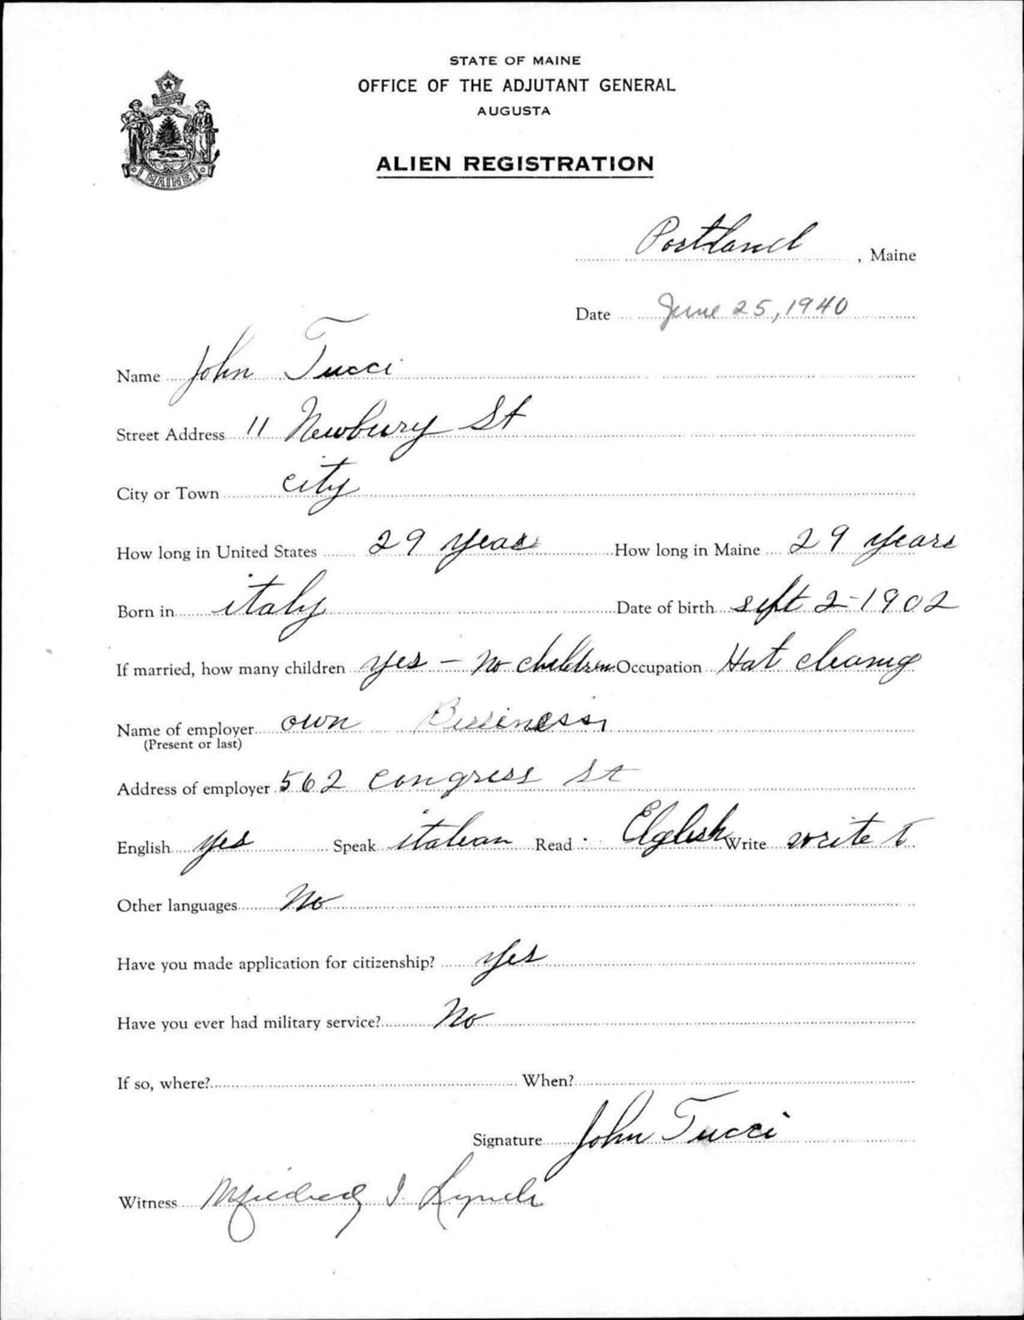 STATE OF MAINE
OFFICE OF THE ADJUTANT GENERAL
AUGUSTA
ALIEN REGISTRATION
MAINE
Portland, Maine
Date June 25, 1940
Name John Tucci
Street Address 11 Newbury St
City or Town city
How long in United States 29 years How long in Maine 29 years
Born in italy Date of birth sept 2-1902
If married, how many children yes - no children Occupation Hat cleaning
Name of employer own Business
(Present or last)
Address of employer 562 Congress St
English yes Speak italian Read Elglish Write write
Other languages No
Have you made application for citizenship? yes
Have you ever had military service? No
If so, where? When?
Signature John Tucci
Witness Mildred I Lynch